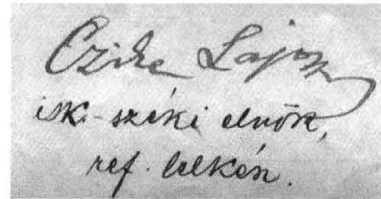 Czike Lajos
isk.-széki elnök,
ref. lelkész.